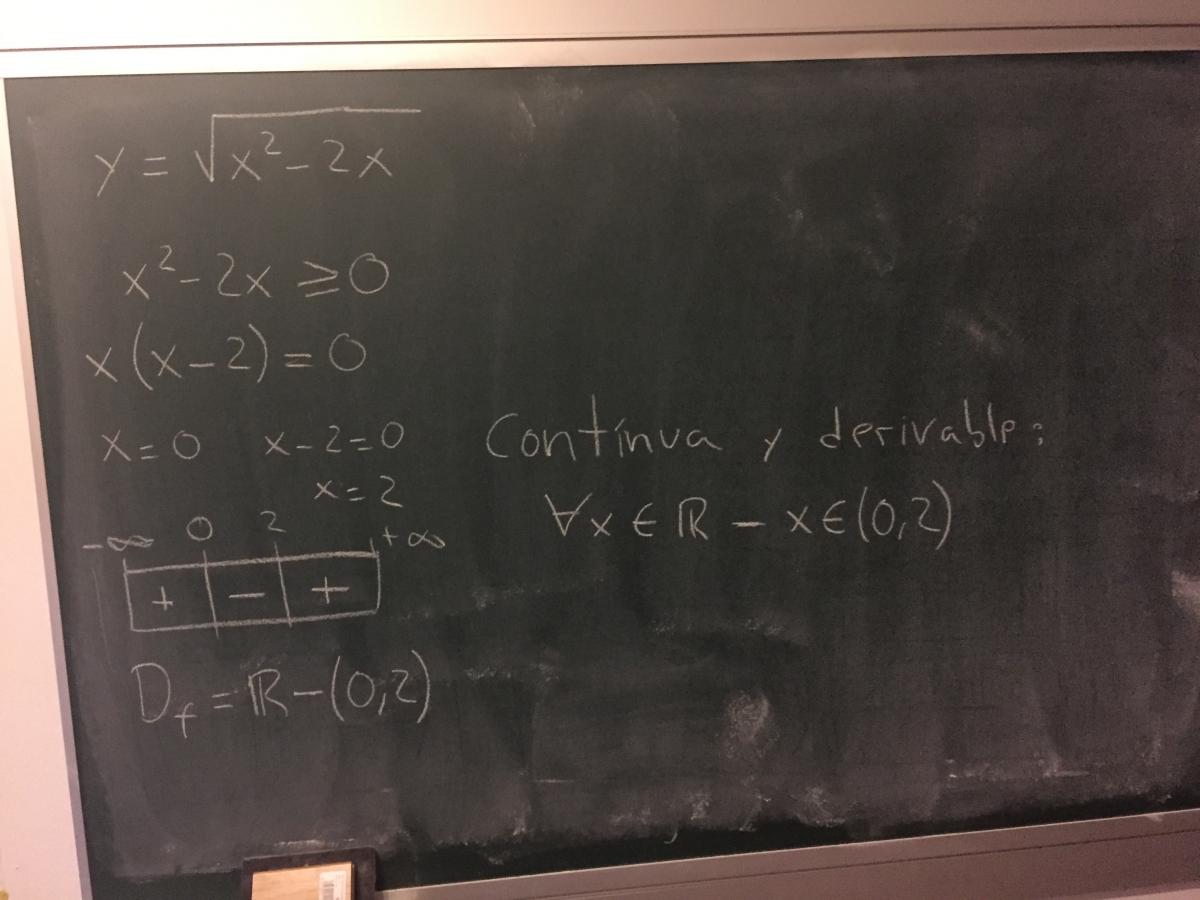 y = √x² - 2x
x² - 2x ≥ 0
x(x - 2) = 0
x = 0 x - 2 = 0
x = 2
-∞ 0 2 +∞
+ - +
D_f = ℝ - (0,2)
Contínua y derivable:
∀x ∈ ℝ - x ∈ (0,2)